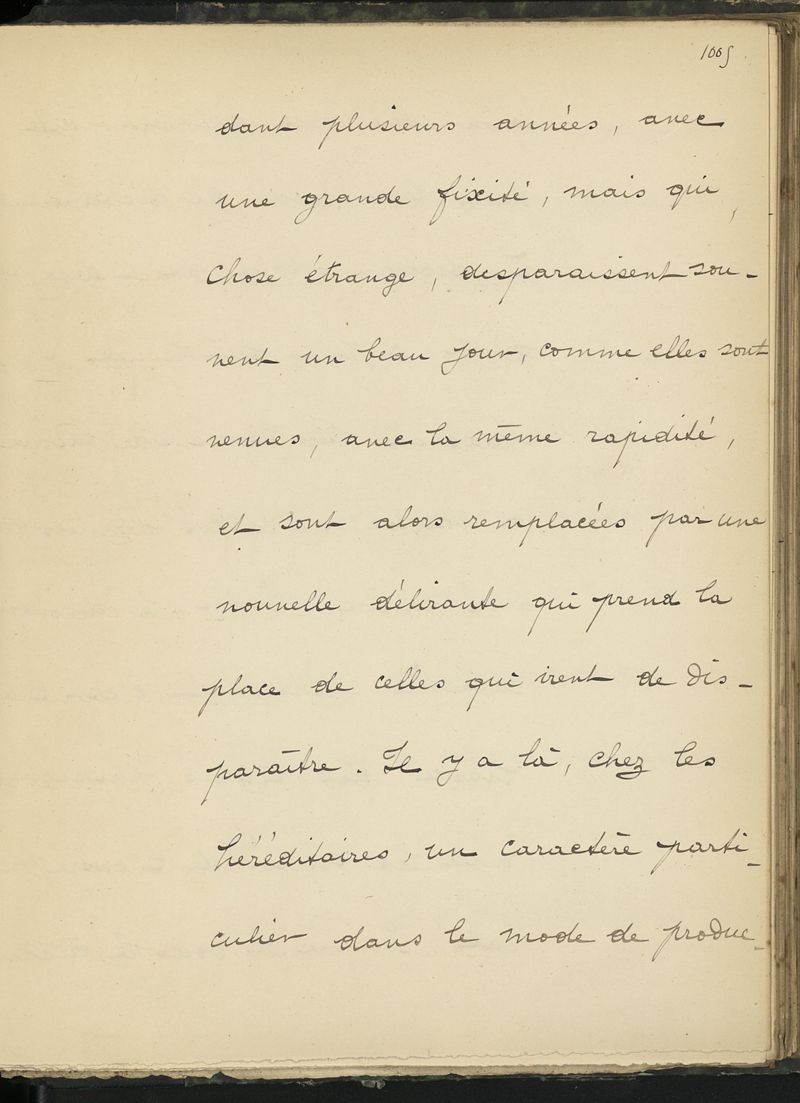 1005
dant plusieurs années, avec
une grande fixité, mais qui,
chose étrange, disparaissent sou-
vent un beau jour, comme elles sont
venues, avec la même rapidité,
et sont alors remplacées par une
nouvelle délirante qui prend la
place de celles qui vient de dis-
paraître. Il y a là, chez les
héréditaires, un caractère parti-
culier dans le mode de produc-